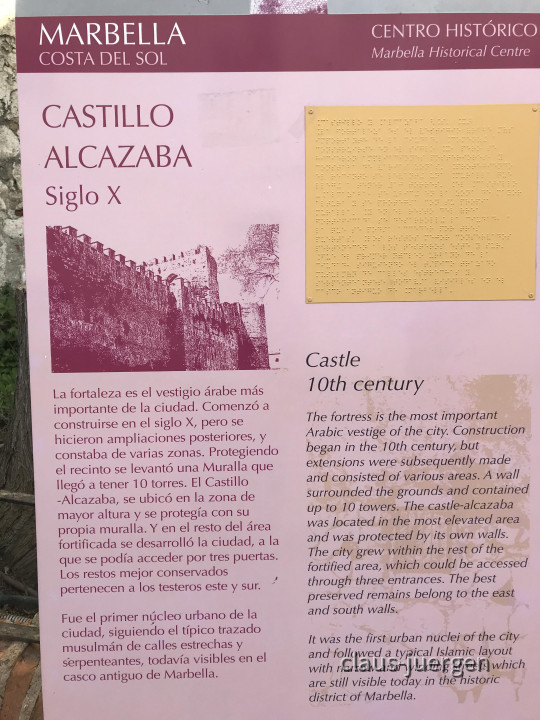 MARBELLA
COSTA DEL SOL
CENTRO HISTÓRICO
Marbella Historical Centre
CASTILLO
ALCAZABA
Siglo X
La fortaleza es el vestigio árabe más
importante de la ciudad. Comenzó a
construirse en el siglo X, pero se
hicieron ampliaciones posteriores, y
constaba de varias zonas. Protegiendo
el recinto se levantó una Muralla que
llegó a tener 10 torres. El Castillo
-Alcazaba, se ubicó en la zona de
mayor altura y se protegía con su
propia muralla. Y en el resto del área
fortificada se desarrolló la ciudad, a la
que se podía acceder por tres puertas.
Los restos mejor conservados
pertenecen a los testeros este y sur.
Fue el primer núcleo urbano de la
ciudad, siguiendo el típico trazado
musulmán de calles estrechas y
serpenteantes, todavía visibles en el
casco antiguo de Marbella.
Castle
10th century
The fortress is the most important
Arabic vestige of the city. Construction
began in the 10th century, but
extensions were subsequently made
and consisted of various areas. A wall
surrounded the grounds and contained
up to 10 towers. The castle-alcazaba
was located in the most elevated area
and was protected by its own walls.
The city grew within the rest of the
fortified area, which could be accessed
through three entrances. The best
preserved remains belong to the east
and south walls.
It was the first urban nuclei of the city
and followed a typical Islamic layout
with which
are still visible today in the historic
district of Marbella.
claus-juergen